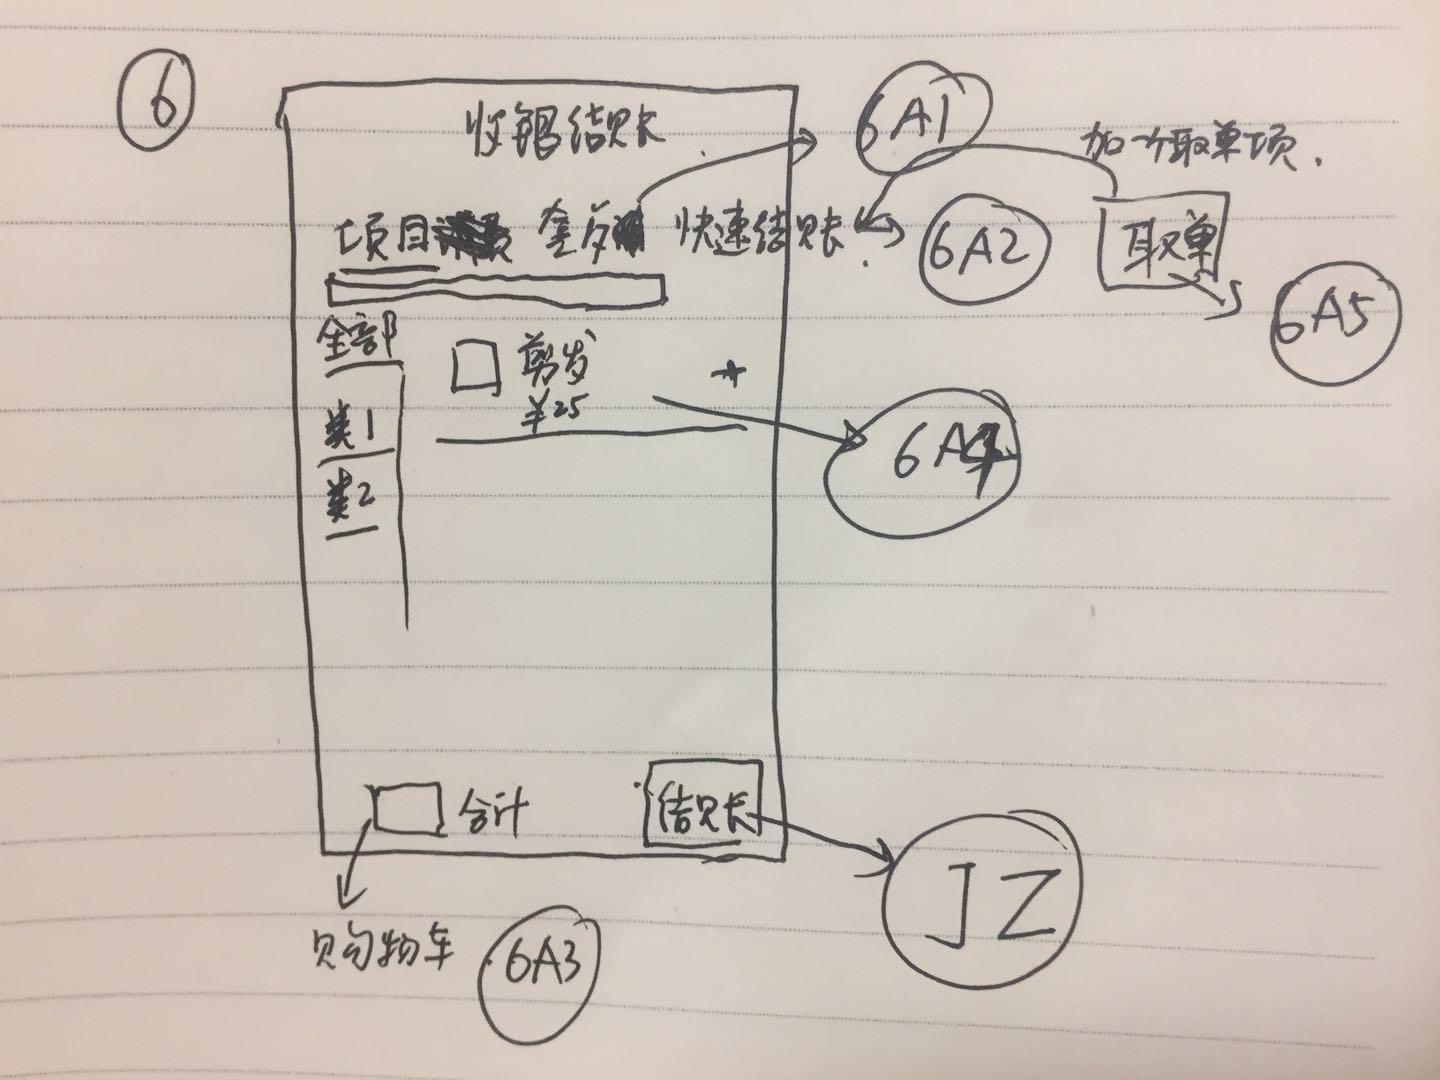 6
收银结账
6A1
加个取单项.
项目
套
快速结账
6A2
取单
6A5
全部
剪发
¥25
+
类1
6A4
类2
合计
结账
JZ
购物车
6A3